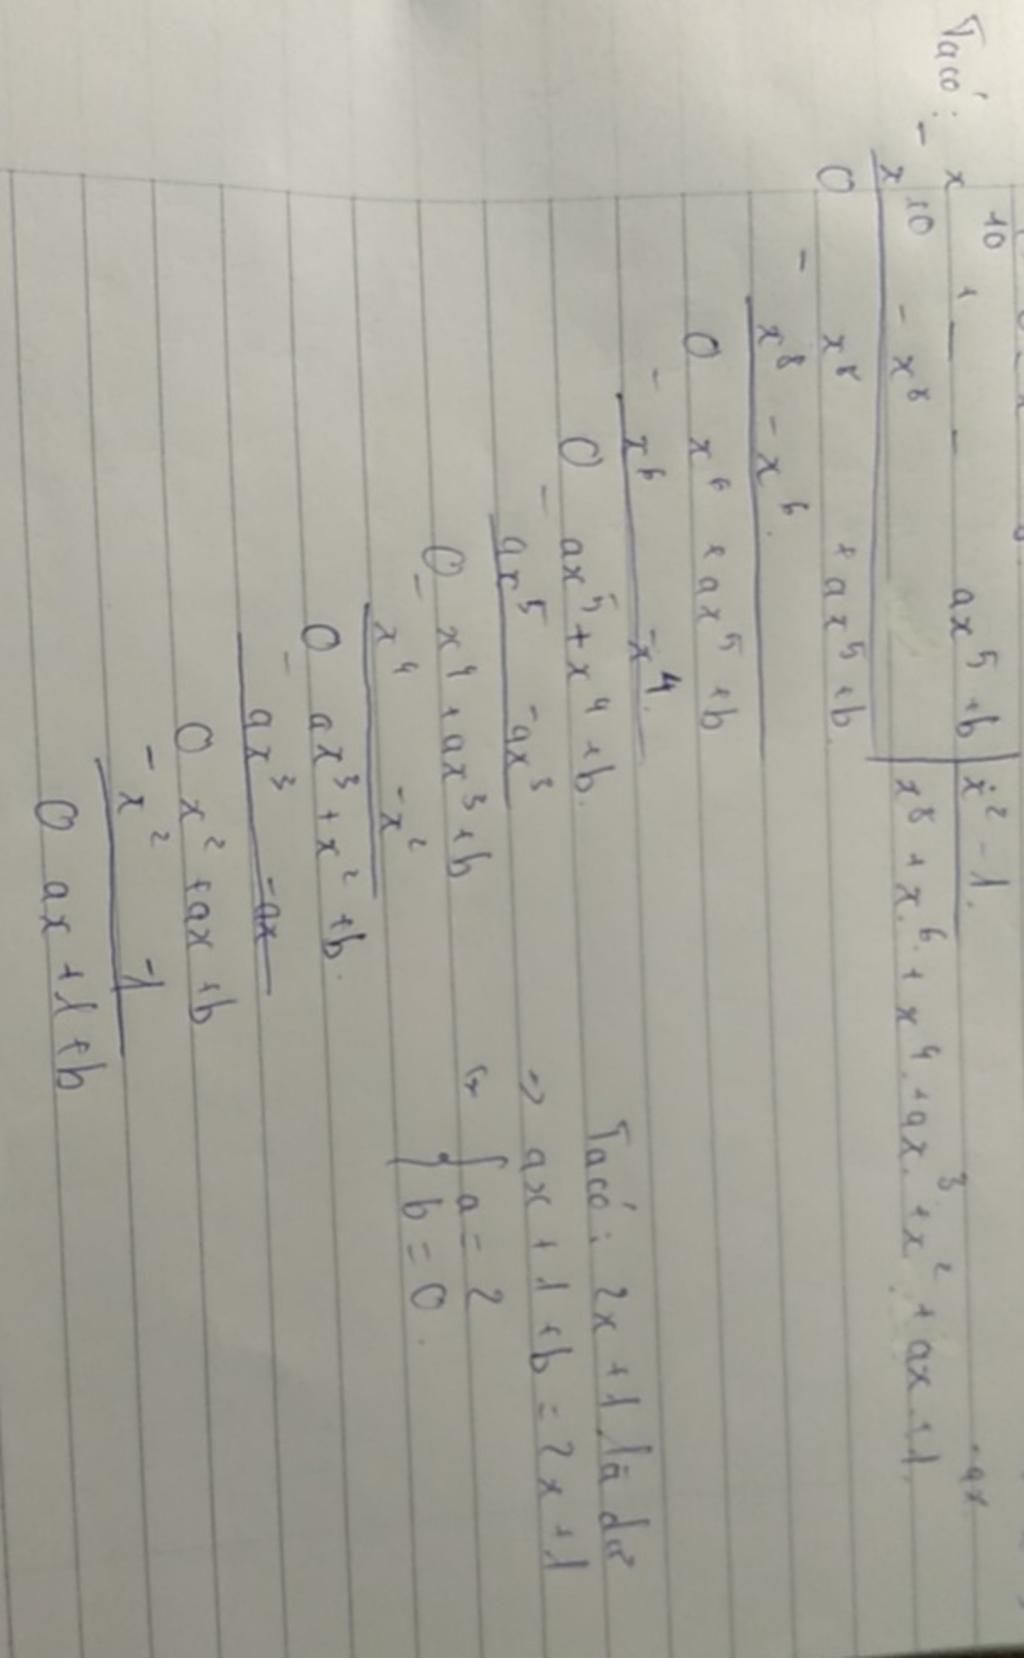 Ta có: x^10 + — — ax^5 + b | x^2 - 1
- x^10 - x^8 | x^8 + x^6 + x^4 + ax^3 + x^2 + ax + 1
0 x^8 + ax^5 + b
- x^8 - x^6
0 x^6 + ax^5 + b
- x^6 - x^4
0 ax^5 + x^4 + b
- ax^5 - ax^3
0 x^4 + ax^3 + b
- x^4 - x^2
0 ax^3 + x^2 + b
- ax^3 - ax
0 x^2 + ax + b
- x^2 - 1
0 ax + 1 + b
Ta có: 2x + 1 là dư
=> ax + 1 + b = 2x + 1
{ a = 2
b = 0.